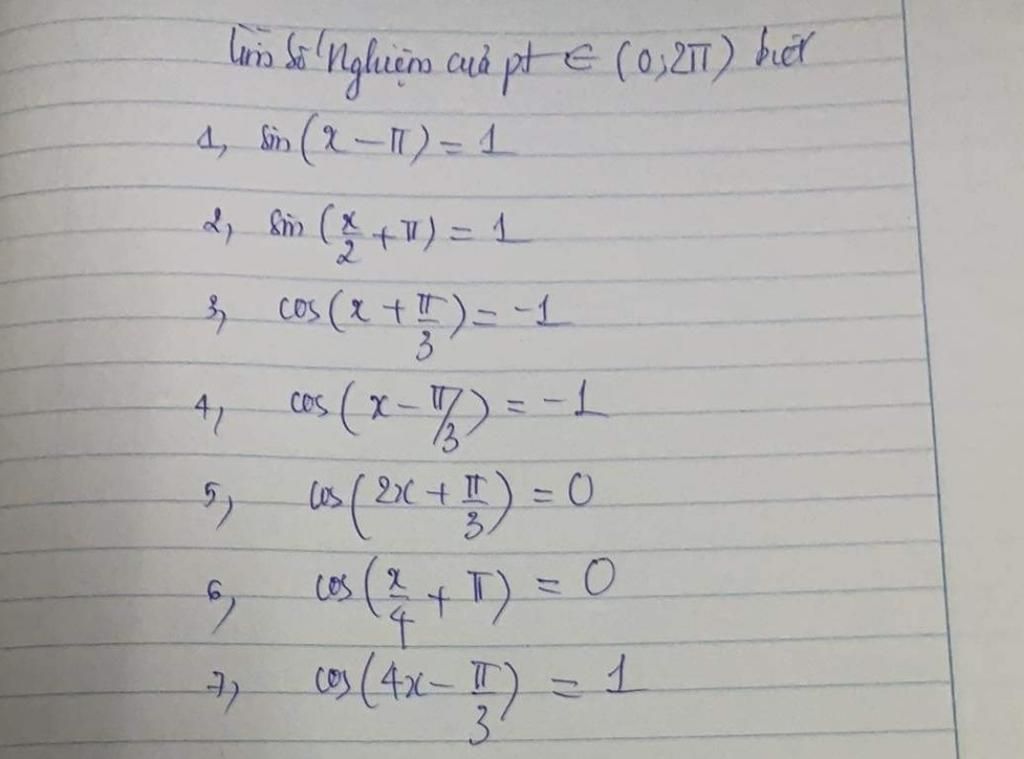 Tìm số nghiệm của pt ∈ (0;2π) biết
1, sin(x − π) = 1
2, sin(x/2 + π) = 1
3, cos(x + π/3) = -1
4, cos(x − π/3) = -1
5, cos(2x + π/3) = 0
6, cos(x/4 + π) = 0
7, cos(4x − π/3) = 1